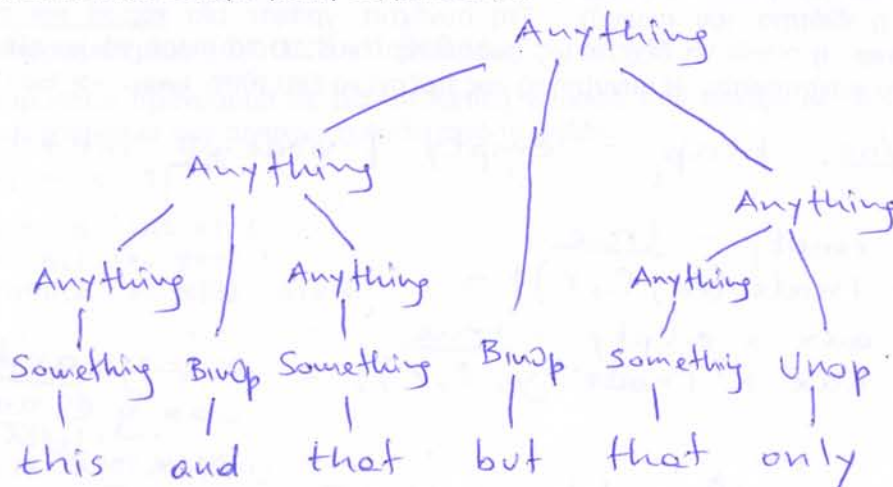 Anything
Anything
Anything
Anything Anything Anything
Something BinOp Something BinOp Something Unop
this and that but that only